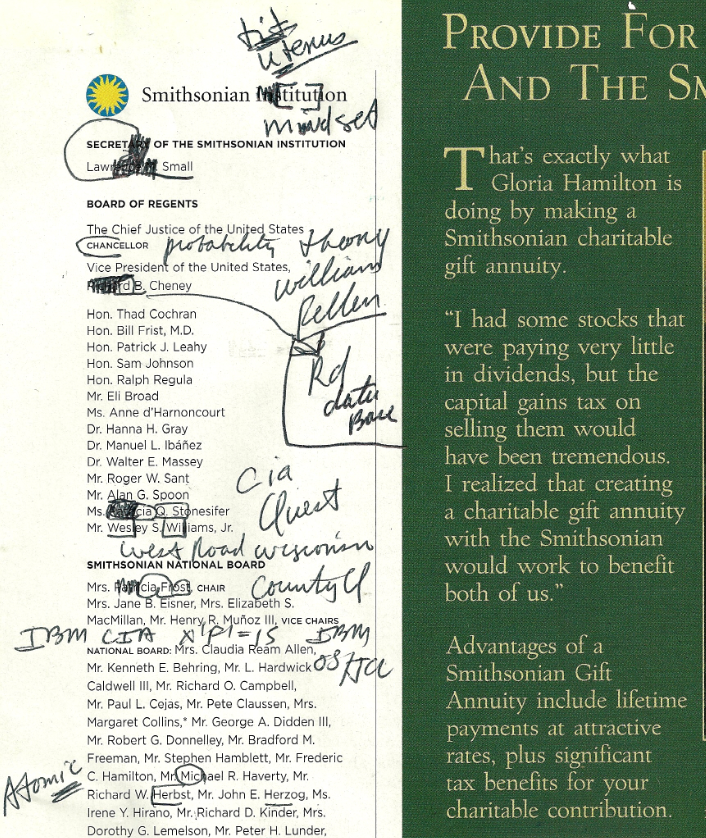 uterus
Smithsonian Institution
mindset
SECRETARY OF THE SMITHSONIAN INSTITUTION
Small
BOARD OF REGENTS
The Chief Justice of the United States
CHANCELLOR
probability theory
Vice President of the United States,
william
B. Cheney
Hon. Thad Cochran
Hon. Bill Frist, M.D.
Hon. Patrick J. Leahy
Hon. Sam Johnson
Hon. Ralph Regula
Mr. Eli Broad
Ms. Anne d'Harnoncourt
Dr. Hanna H. Gray
Dr. Manuel L. Ibáñez
Dr. Walter E. Massey
Mr. Roger W. Sant
Mr. Alan G. Spoon
Ms. cia Q. Stonesifer
Mr. Wesley S. Williams, Jr.
data
Base
Cia
Quest
West Road wisconsin
SMITHSONIAN NATIONAL BOARD
Mrs. Patricia Frost, CHAIR
County
Mrs. Jane B. Eisner, Mrs. Elizabeth S.
MacMillan, Mr. Henry R. Muñoz III, VICE CHAIRS
IBM CIA IBM
NATIONAL BOARD: Mrs. Claudia Ream Allen,
Mr. Kenneth E. Behring, Mr. L. Hardwick
Caldwell III, Mr. Richard O. Campbell,
Mr. Paul L. Cejas, Mr. Pete Claussen, Mrs.
Margaret Collins,* Mr. George A. Didden III,
Mr. Robert G. Donnelley, Mr. Bradford M.
Freeman, Mr. Stephen Hamblett, Mr. Frederic
C. Hamilton, Mr. Michael R. Haverty, Mr.
Atomic
Richard W. Herbst, Mr. John E. Herzog, Ms.
Irene Y. Hirano, Mr. Richard D. Kinder, Mrs.
Dorothy G. Lemelson, Mr. Peter H. Lunder,
PROVIDE FOR
AND THE SM
That's exactly what
Gloria Hamilton is
doing by making a
Smithsonian charitable
gift annuity.
"I had some stocks that
were paying very little
in dividends, but the
capital gains tax on
selling them would
have been tremendous.
I realized that creating
a charitable gift annuity
with the Smithsonian
would work to benefit
both of us."
Advantages of a
Smithsonian Gift
Annuity include lifetime
payments at attractive
rates, plus significant
tax benefits for your
charitable contribution.